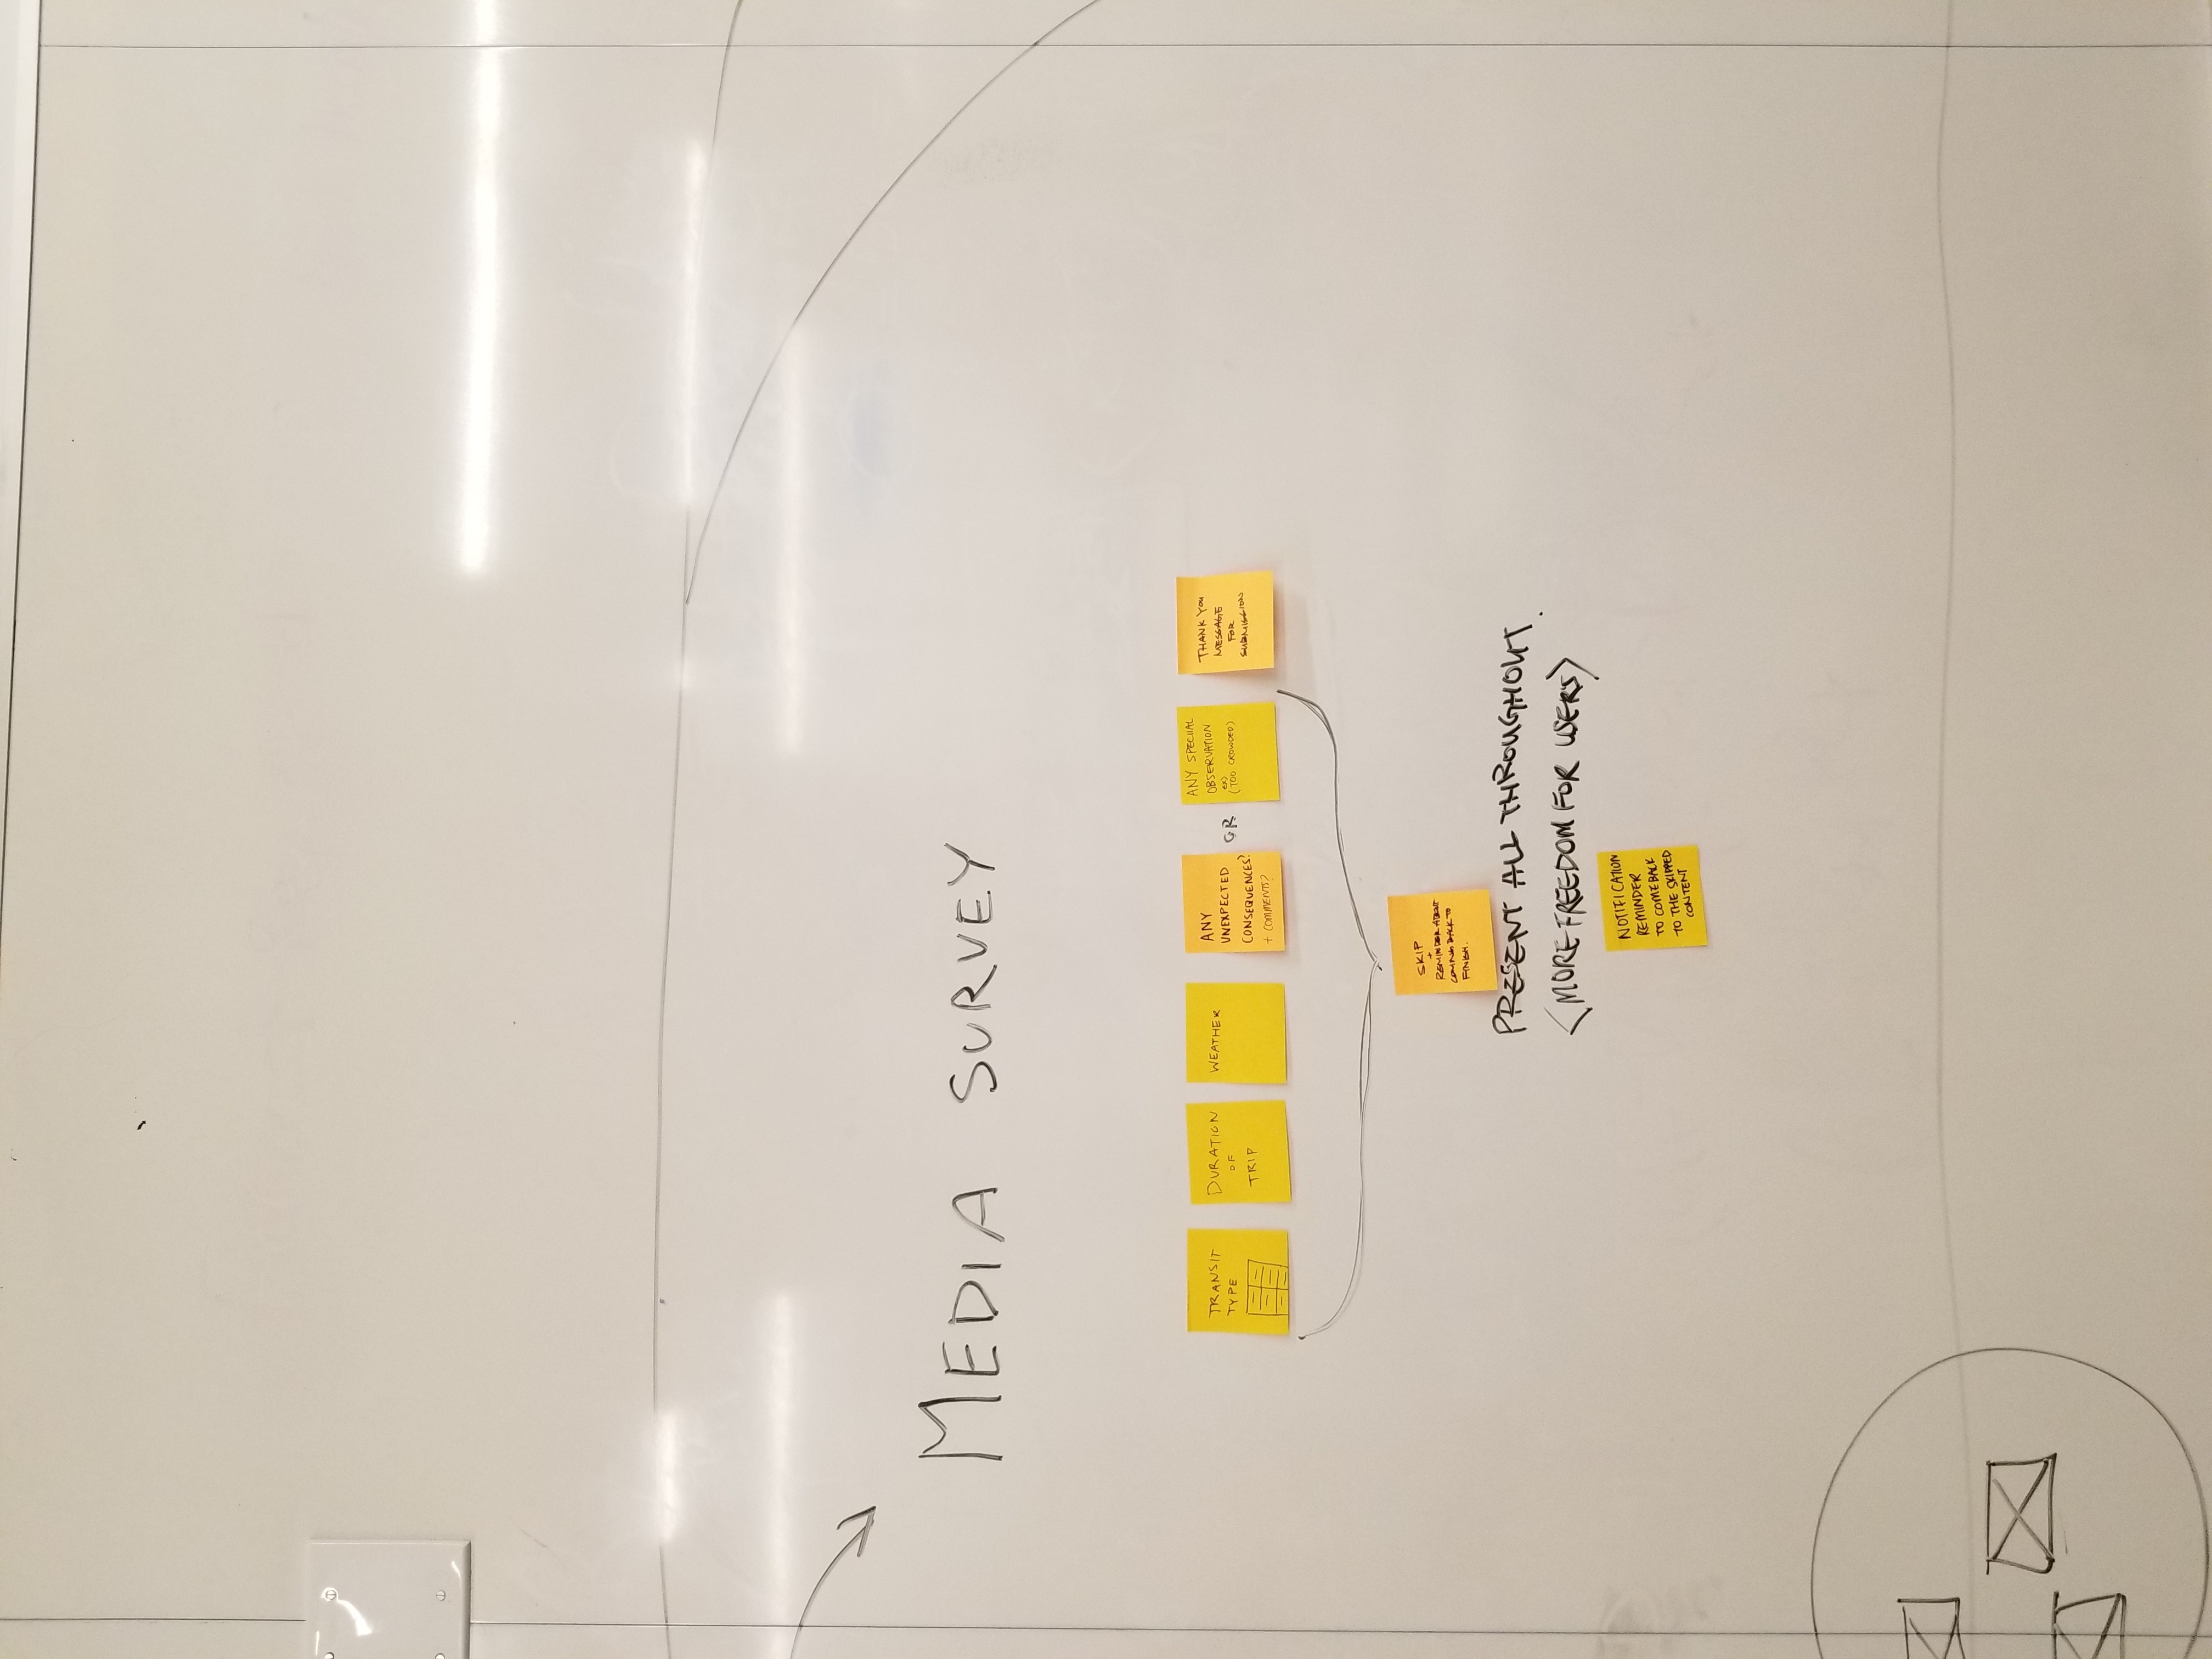 MEDIA SURVEY
TRANSIT
TYPE
DURATION
OF
TRIP
WEATHER
ANY
UNEXPECTED
CONSEQUENCES?
+ COMMENTS?
OR
ANY SPECIIAL
OBSERVATION
ex)
(TOO CROWDED)
THANK YOU
MESSAGE
FOR
SUBMISSION
SKIP
+
REMINDER ABOUT
COMING BACK TO
FINISH.
PRESENT ALL THROUGHOUT.
<MORE FREEDOM FOR USERS>
NOTIFICATION
REMINDER
TO COMEBACK
TO THE SKIPPED
CONTENT